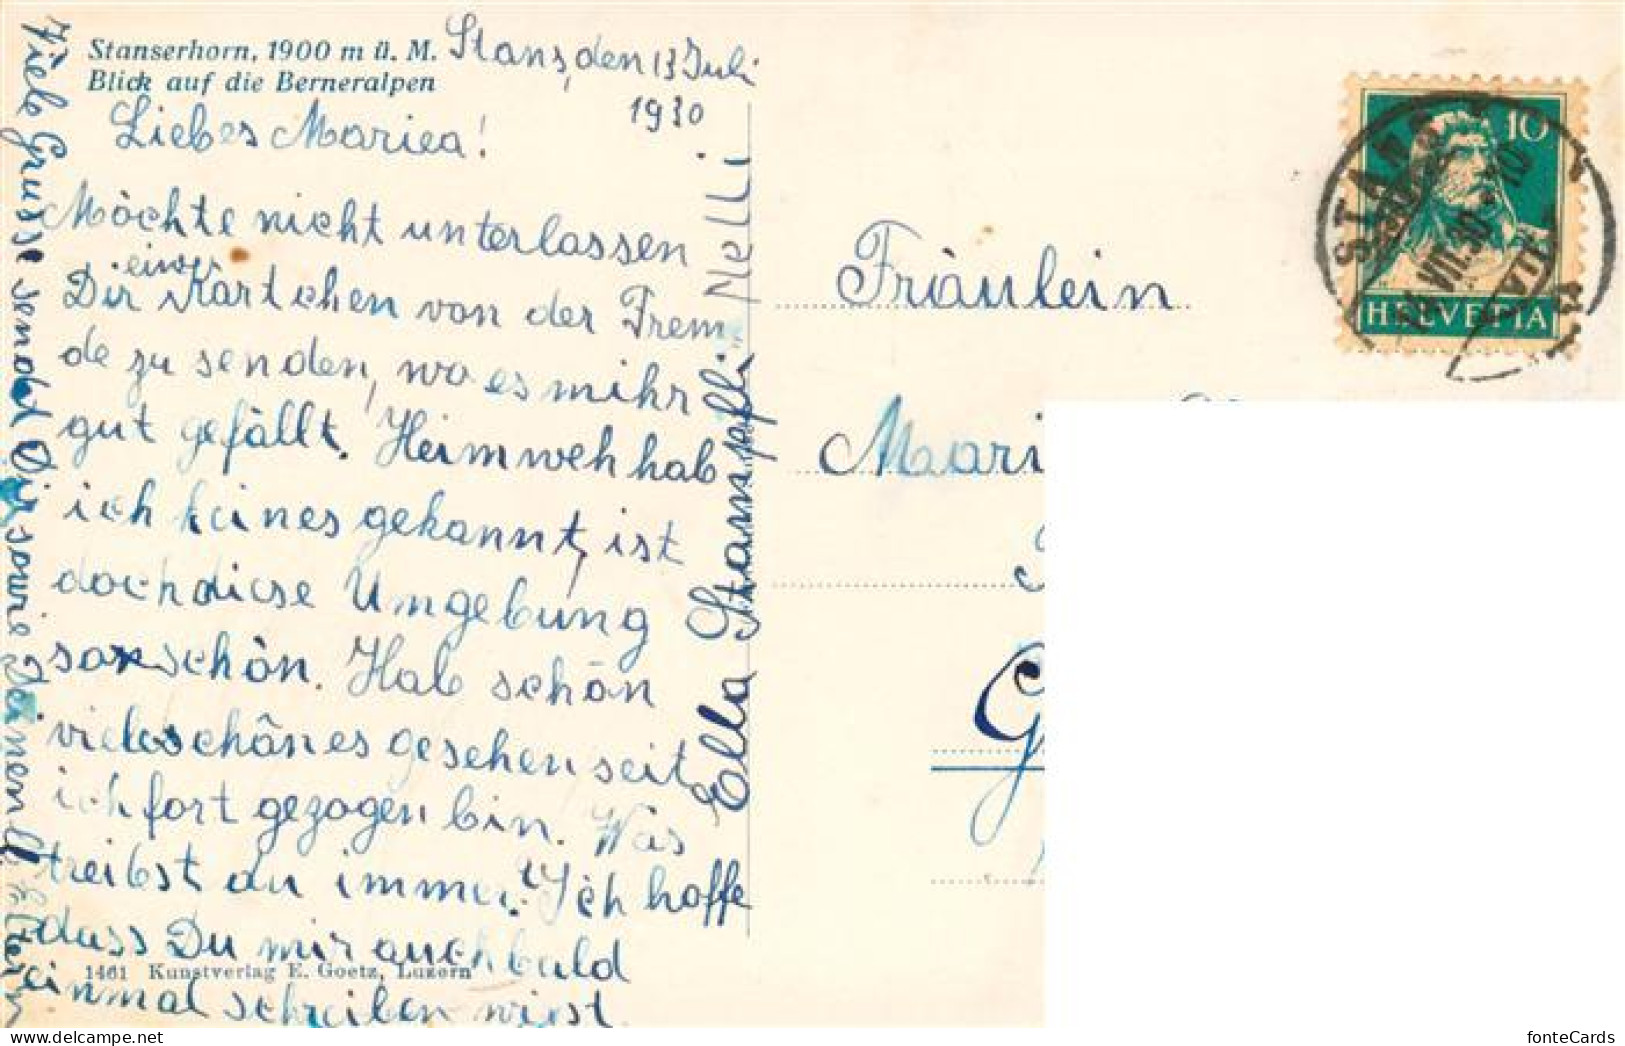 Stanserhorn, 1900 m ü. M.
Blick auf die Berneralpen
Stans, den 13 Juli
1930
Liebes Mariea!
Möchte nicht unterlassen
Dir einige Kärtchen von der Frem
de zu senden, wo es mihr
gut gefällt. Heimweh hab
ich keines gekannt, ist
doch diese Umgebung
so schön. Hab schön
viele schönes gesehen seit
ich fort gezogen bin. Was
treibst du immer? Ich hoffe
dass Du mir auch bald
einmal schreiben wirst.
1461 Kunstverlag E. Goetz, Luzern
Viele Grüsse sendet Dir sowie Deinen l. Eltern
Ella Stanssefli Nelli
Fräulein
Mari
G
10
HELVETIA
STANS
VII.30
fonteCards